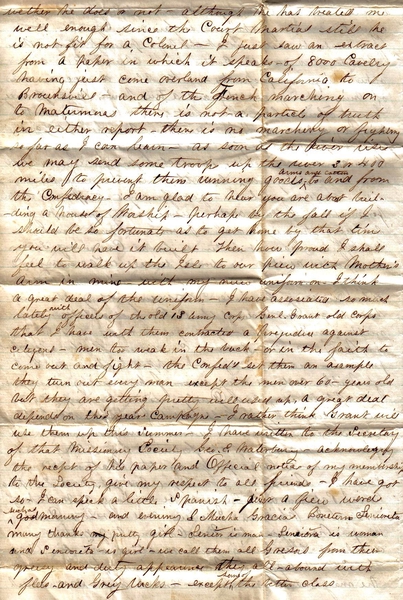 wether he does or not although he has treated me
well enough since the Court Martial still he
is not fit for a Colonel - I just saw an extract
from a paper in which it speaks of 8000 Cavelry
having just come overland from California to
Brownsvill - and of the French marching on
to Matamoras there is not a particle of truth
in either report - there is no marching or fighting
so far as I can learn - as soon as the River rises
we may send some troops up the river 3 or 400
miles to prevent them running goods arms and cotton to and from
the Confederacy - I am glad to hear you are about buil-
ding a house of Worship - perhaps by the fall if I
should be so fortunate as to get home by that time
you will have it built Then how proud I shall
feel to walk up the Isle to our pew with Mother's
Arm in mine - with my new uniform on I think
a great deal of the uniform - I have associated so much
lately with officers of the old 13 Army Corp Genl. Grant old Corps
that I have with them contracted a prejudice against
citizens - men to weak in the back or in the faith to
come out and fight - the Confed's set them an example
they turn out every man except the men over 60 years old
but they are getting pretty well used up, a great deal
depends on this year Campaigne - I rather think Grant will
use them up this Summer - I have written to the Secretary
of that Missionary Society acknowledging
the recept of his paper and Official notice of my membership
to the Society, give my respect to all friends - I have got
so I can speak a little Spanish - quite a few word
godmorning and evening & Mucha Gracia Boneton Senioreta
many thanks my pretty girl - Senior is man - Seniora is woman
and Senioreta is girl - we call them all Greasers from their
greasy and dirty appearance they all abound with
flees - and Grey backs - except the better class